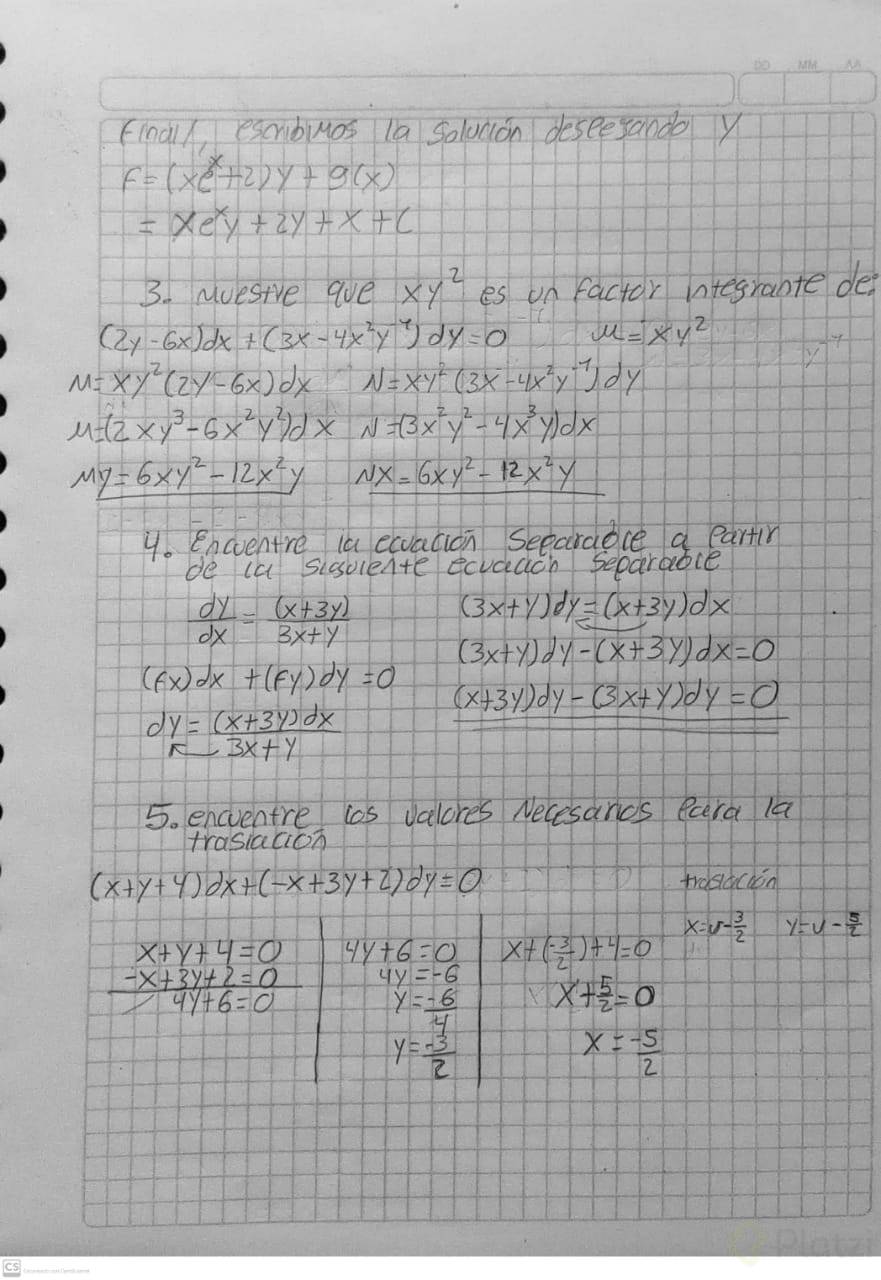 DD MM AA
Final/, escribimos la solución despejando y
F=(xeˣ+2)y+g(x)
=xeˣy+2y+x+C
3. Muestre que xy² es un factor integrante de:
(2y-6x)dx+(3x-4x²y⁻¹)dy=0 μ=xy²
M=xy²(2y-6x)dx N=xy²(3x-4x²y⁻¹)dy
M=(2xy³-6x²y²)dx N=(3x²y²-4x³y)dx
My=6xy²-12x²y Nx=6xy²-12x²y
4. Encuentre la ecuación Separable a Partir
de la siguiente ecuación separable
dy/dx=(x+3y)/3x+y (3x+y)dy=(x+3y)dx
(3x+y)dy-(x+3y)dx=0
(fx)dx+(fy)dy=0
(x+3y)dy-(3x+y)dy=0
dy=(x+3y)dx/3x+y
5. encuentre los valores Necesarios Para la
traslación
(x+y+4)dx+(-x+3y+2)dy=0 traslación
x=u-3/2 y=v-5/2
x+y+4=0 4y+6=0 x+(-3/2)+4=0
-x+3y+2=0 4y=-6
4y+6=0 y=-6/4 x+5/2=0
y=-3/2 x=-5/2
Platzi
CS